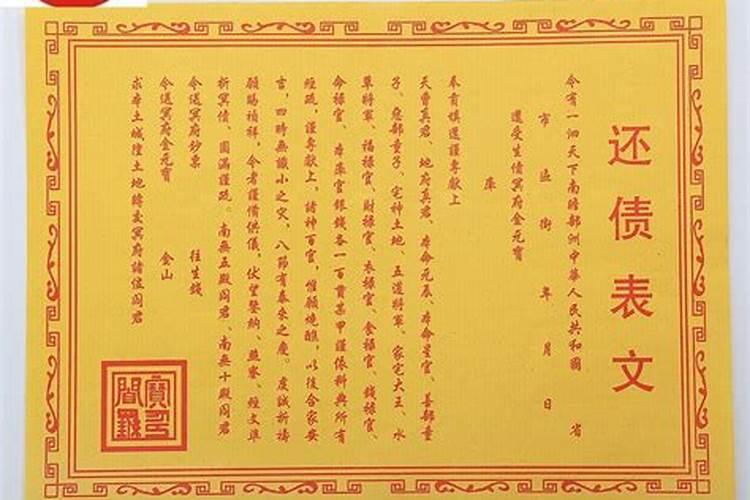 还债表文
今有一泗天下南瞻部洲中華人民共和國 省
市 區 街 年 月 日
還受生債冥府金元寶
庫
奉肯填還謹專献上
天曹真君、地府真君、本命元辰、本命星官、善部童
子、惡部童子、宅神土地、五道將軍、家宅大王、水
草將軍、福禄官、財禄官、衣禄官、食禄官、錢禄官、
命禄官、本庫官銀錢各一百貫某甲謹依科典所有
經疏，謹專献上，諸神百官，惟願燒醮，以後合家安
吉，四時無讖小之灾，八節有泰來之慶。虔誠祈禱
願賜禎祥，令者謹備供儀，伏望鑒納、照察、經文準
折冥債、圓滿謹疏。南無五殿阎君、南無十殿阎君
令送冥府鈔票 往生錢
令送冥府金元寶 金山
求本土城隍土地轉交冥府諸位阎君